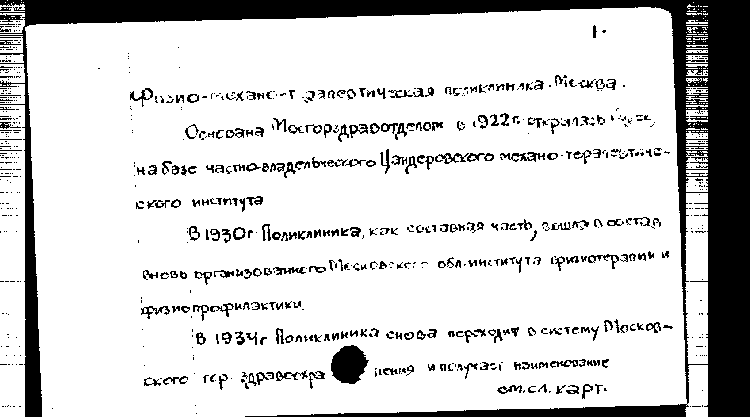 1.
Физио-механо-терапевтическая поликлиника. Москва.
Основана Мосгорздравотделом в 1922г. открылась
на базе частно-владельческого Цандеровского механо-терапевтиче-
ского института
В 1930г Поликлиника, как составная часть, вошла в состав
вновь организованного Московского обл-института физиотерапии и
физиопрофилактики.
В 1934г Поликлиника снова переходит в систему Москов-
ского гор. здравоохранения и получает наименование
см. сл. карт.